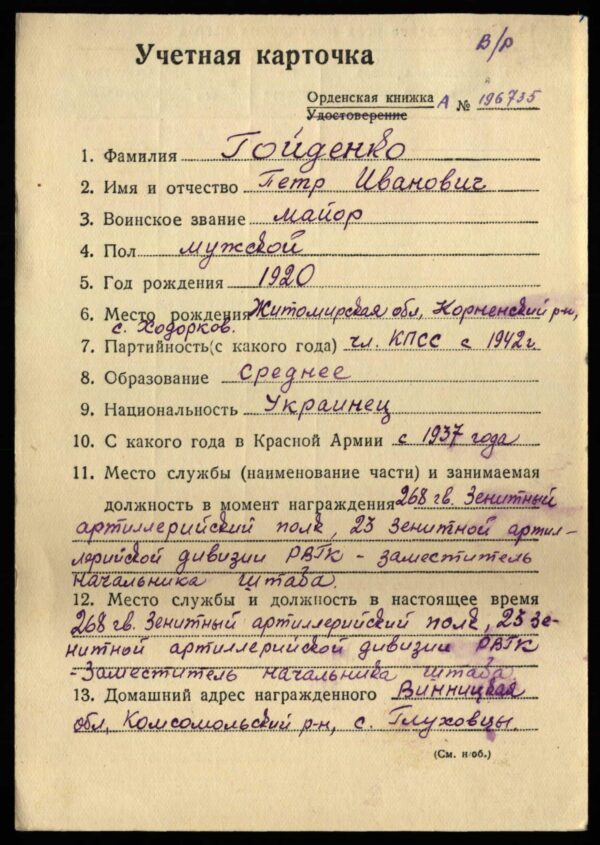 В/р
Учетная карточка
Орденская книжка А № 196735
Удостоверение
1. Фамилия Гойденко
2. Имя и отчество Петр Иванович
3. Воинское звание майор
4. Пол мужской
5. Год рождения 1920
6. Место рождения Житомирская обл, Корненский р-н,
с. Ходорков.
7. Партийность(с какого года) чл. КПСС с 1942г
8. Образование среднее
9. Национальность Украинец
10. С какого года в Красной Армии с 1937 года
11. Место службы (наименование части) и занимаемая
должность в момент награждения 268 гв. Зенитный
артиллерийский полк, 23 Зенитной артил-
лерийской дивизии РВГК - заместитель
начальника штаба.
12. Место службы и должность в настоящее время
268 гв. Зенитный артиллерийский полк, 23 зе-
нитной артиллерийской дивизии РВГК
- Заместитель начальника штаба
13. Домашний адрес награжденного Винницкая
обл, Комсомольский р-н, с. Глуховцы.
(См. н/об.)